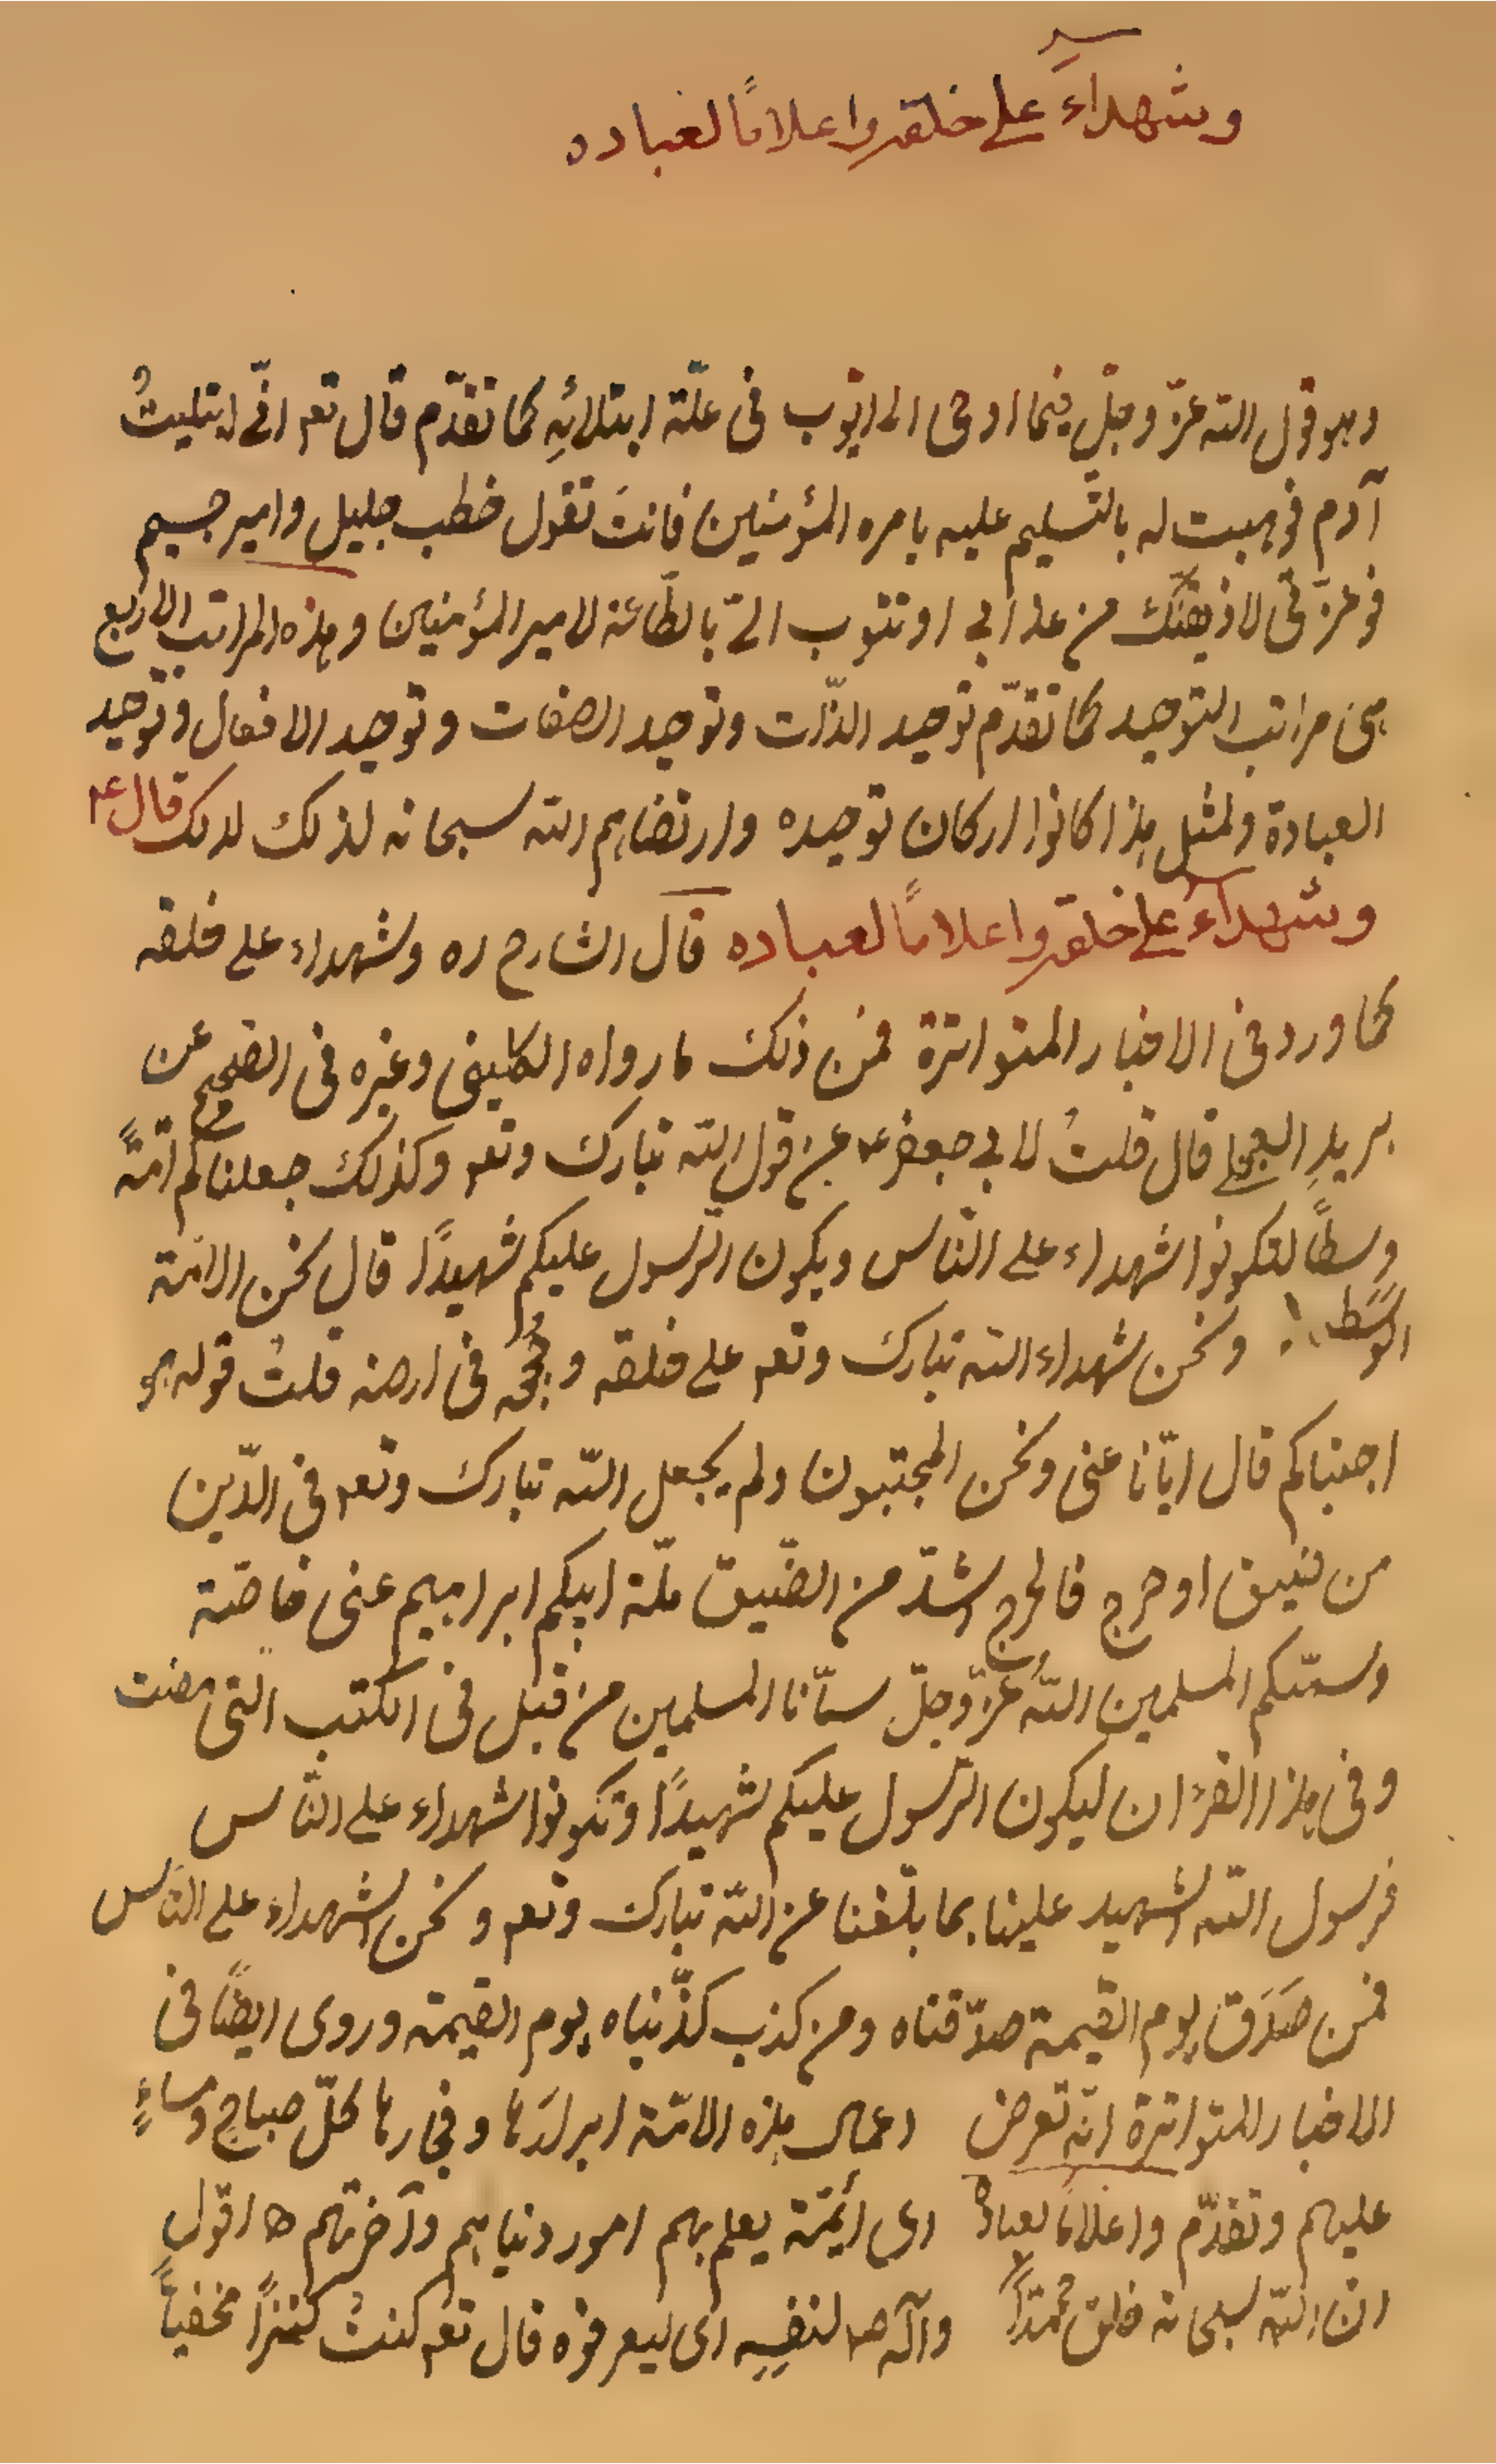 وشهداءَ على خلقه واعلامًا لعباده
وهو قول الله عزّ وجلّ فيما اوحى الى ايّوب فى علّة ابتلائِهِ كما تقدّم قال تعـ انّى ابتليتُ
آدم فوهبت له بالتّسليم عليه بامره المؤمنين فانتَ تقول خطب جليل وامير جسيم
فوعزّتى لاذيقنّك من عذابى او تتوب الىّ بالطّاعة لامير المؤمنين وهذه المراتب الاربع
هى مراتب التوحيد كما تقدّم توحيد الذّات وتوحيد الصفات وتوحيد الافعال وتوحيد
العبادة ولمثل هذا كانوا اركان توحيده وارتضاهم الله سبحانه لذلك قال ع
وشهداءَ على خلقه واعلامًا لعباده قال الشارح ره وشهداء على خلقه
كما ورد فى الاخبار المتواترة فمن ذلك ما رواه الكلينى وغيره فى الصّحيح عن
بريدِ العجلى قال قلتُ لابى جعفر ع عن قول الله تبارك وتعـ وكذلك جعلناكم امّةً
وسطًا لتكونوا شهداء على النّاس ويكون الرّسول عليكم شهيدًا قال نحن الامّة
الوسط ونحن شهداء الله تبارك وتعـ على خلقه وحُججه فى ارضه قلتُ قوله هو
اجتباكم قال ايّانا عنى ونحن المجتبون ولم يجعل الله تبارك وتعـ فى الدّين
من ضيق او حرج فالحرج اشدّ من الضّيق ملّة ابيكم ابراهيم عنى خاصّة
وسمّيكم المسلمين اللهُ عزّ وجلّ سمّانا المسلمين من قبل فى الكتب الّتى مضت
وفى هذا القرءان ليكون الرّسول عليكم شهيدًا وتكونوا شهداء على النّاس
فرسول الله الشهيد علينا بما بلّغنا عن الله تبارك وتعـ ونحن الشهداء على النّاس
فمن صَدَق يوم القيمة صدّقناه ومن كذب كذّبناه يوم القيمة وروى ايضًا فى
الاخبار المتواترة انّه تعرض اعمال هذه الامّة ابرارَها وفجارها كلّ صباحٍ ومساءٍ
عليهم وتقدّم واعلامًا لعباده اى ائمّة يعلم بهم امور دنياهم وآخرتهم ه اقول
انّ الله سبحانه خلق محمّدًا وآله ص لنفسِهِ اى ليعرفوه قال تعـ كنتُ كنزًا مخفيًّا